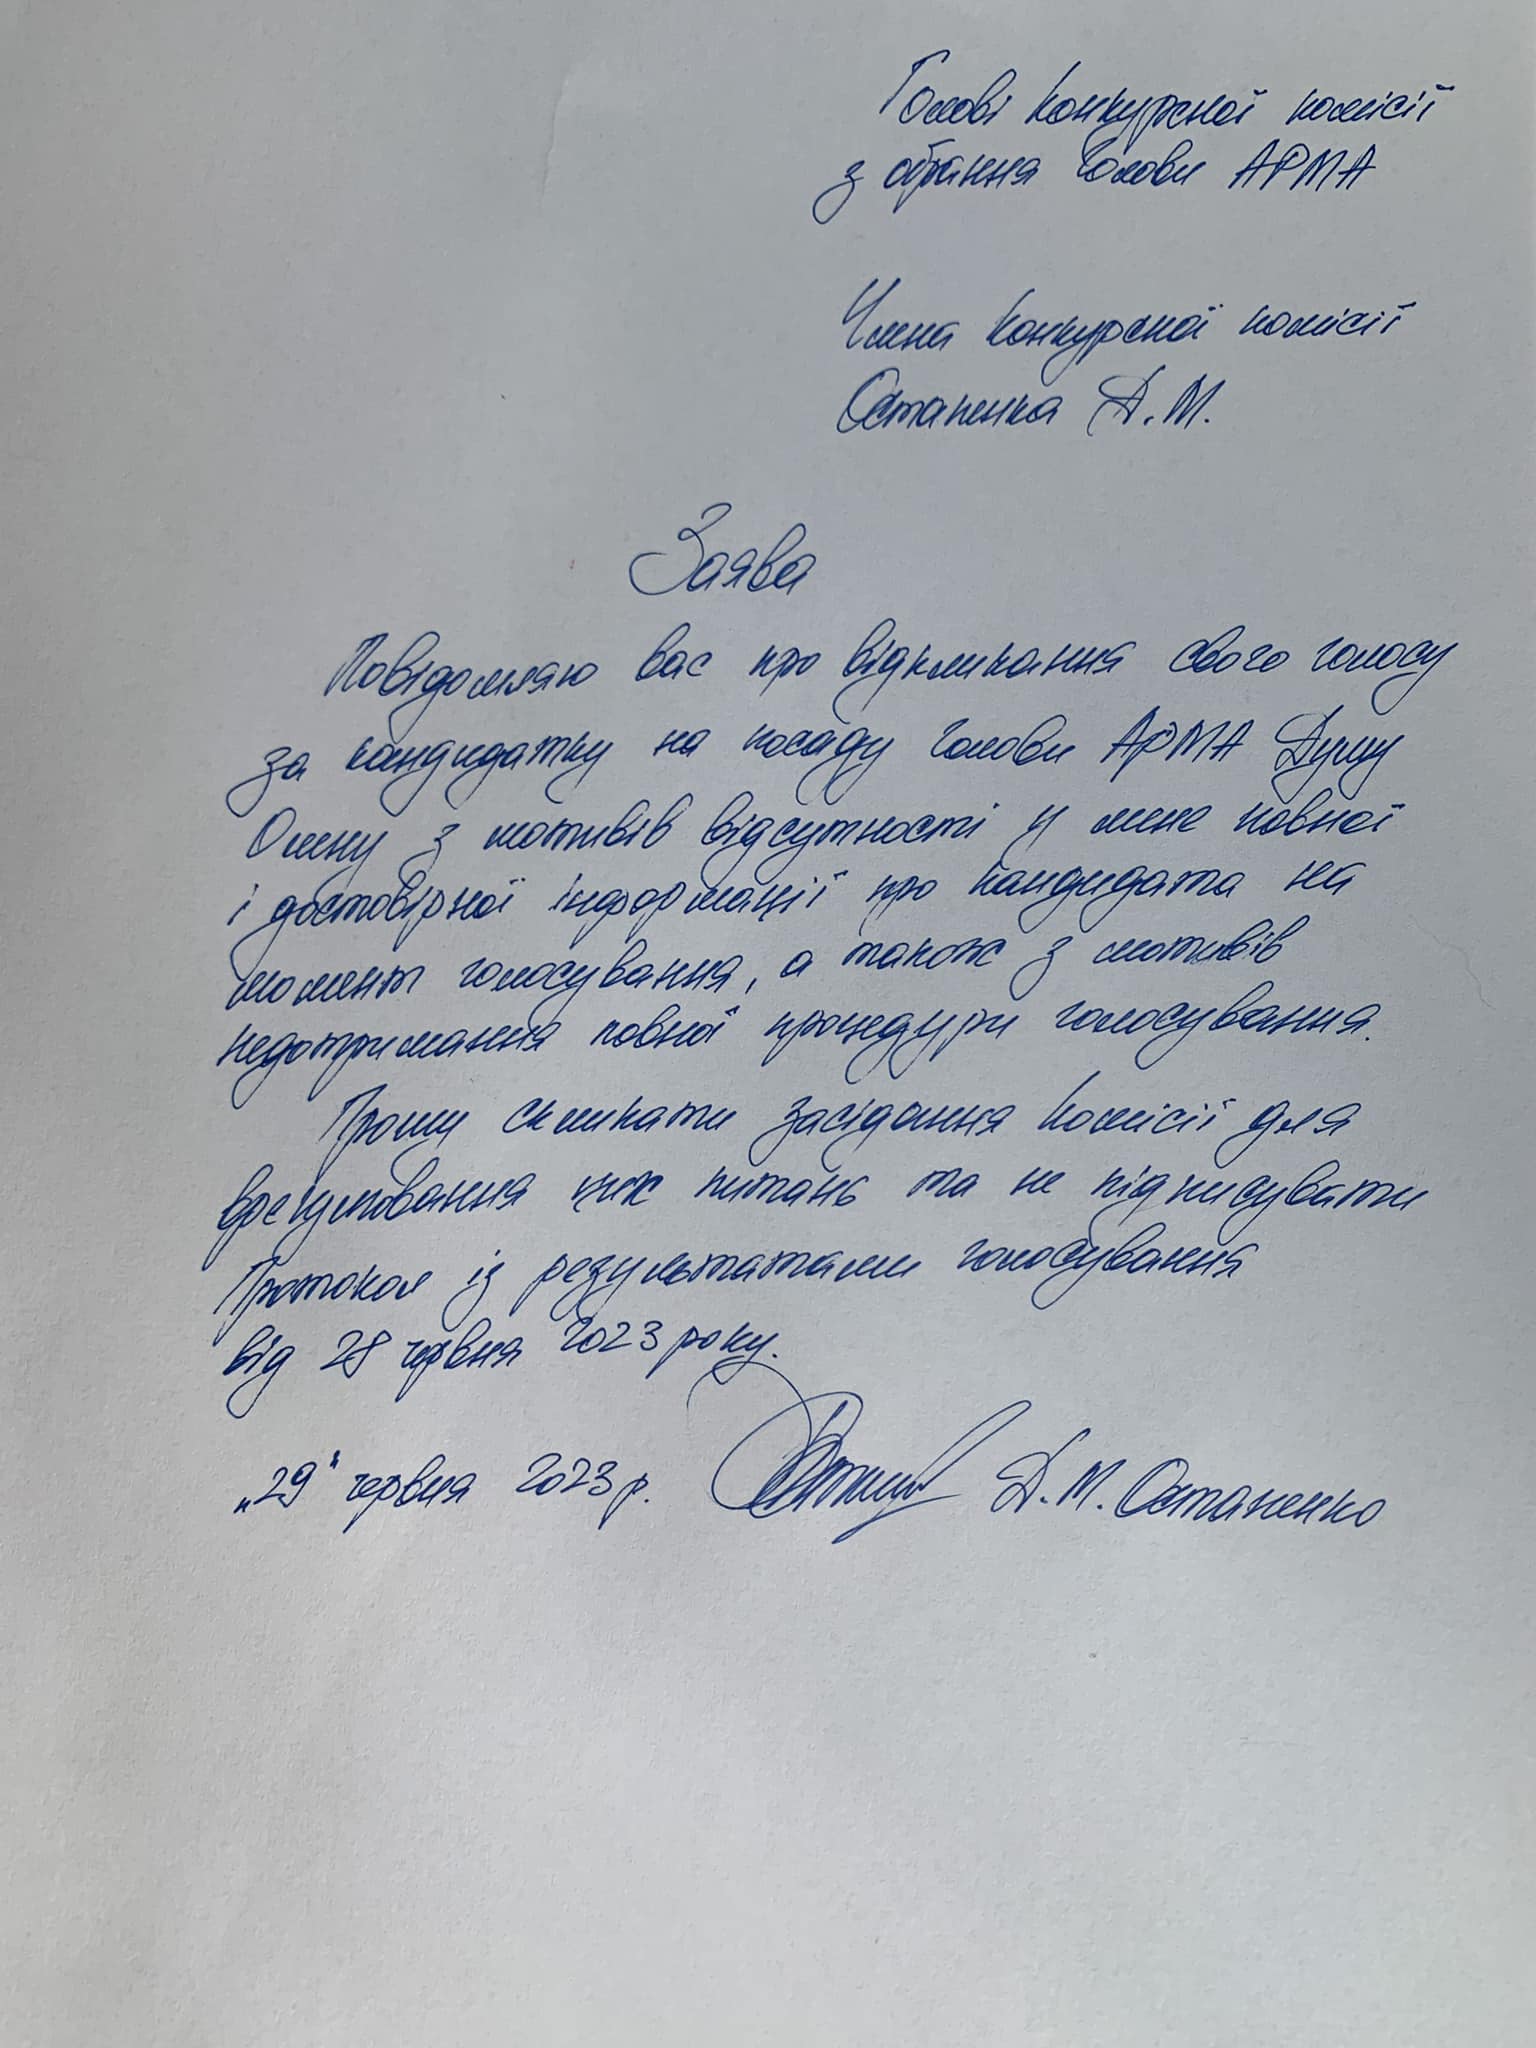 Голові конкурсної комісії
з обрання Голови АРМА
Члена конкурсної комісії
Остапенка Д.М.
Заява
Повідомляю вас про відкликання свого голосу
за кандидатку на посаду Голови АРМА Думу
Олену з мотивів відсутності у мене повної
і достовірної інформації про кандидата на
момент голосування, а також з мотивів
недотримання повної процедури голосування.
Прошу скликати засідання Комісії для
врегулювання цих питань та не підписувати
Протокол із результатами голосування
від 28 червня 2023 року.
„29“ червня 2023 р. Д.М. Остапенко